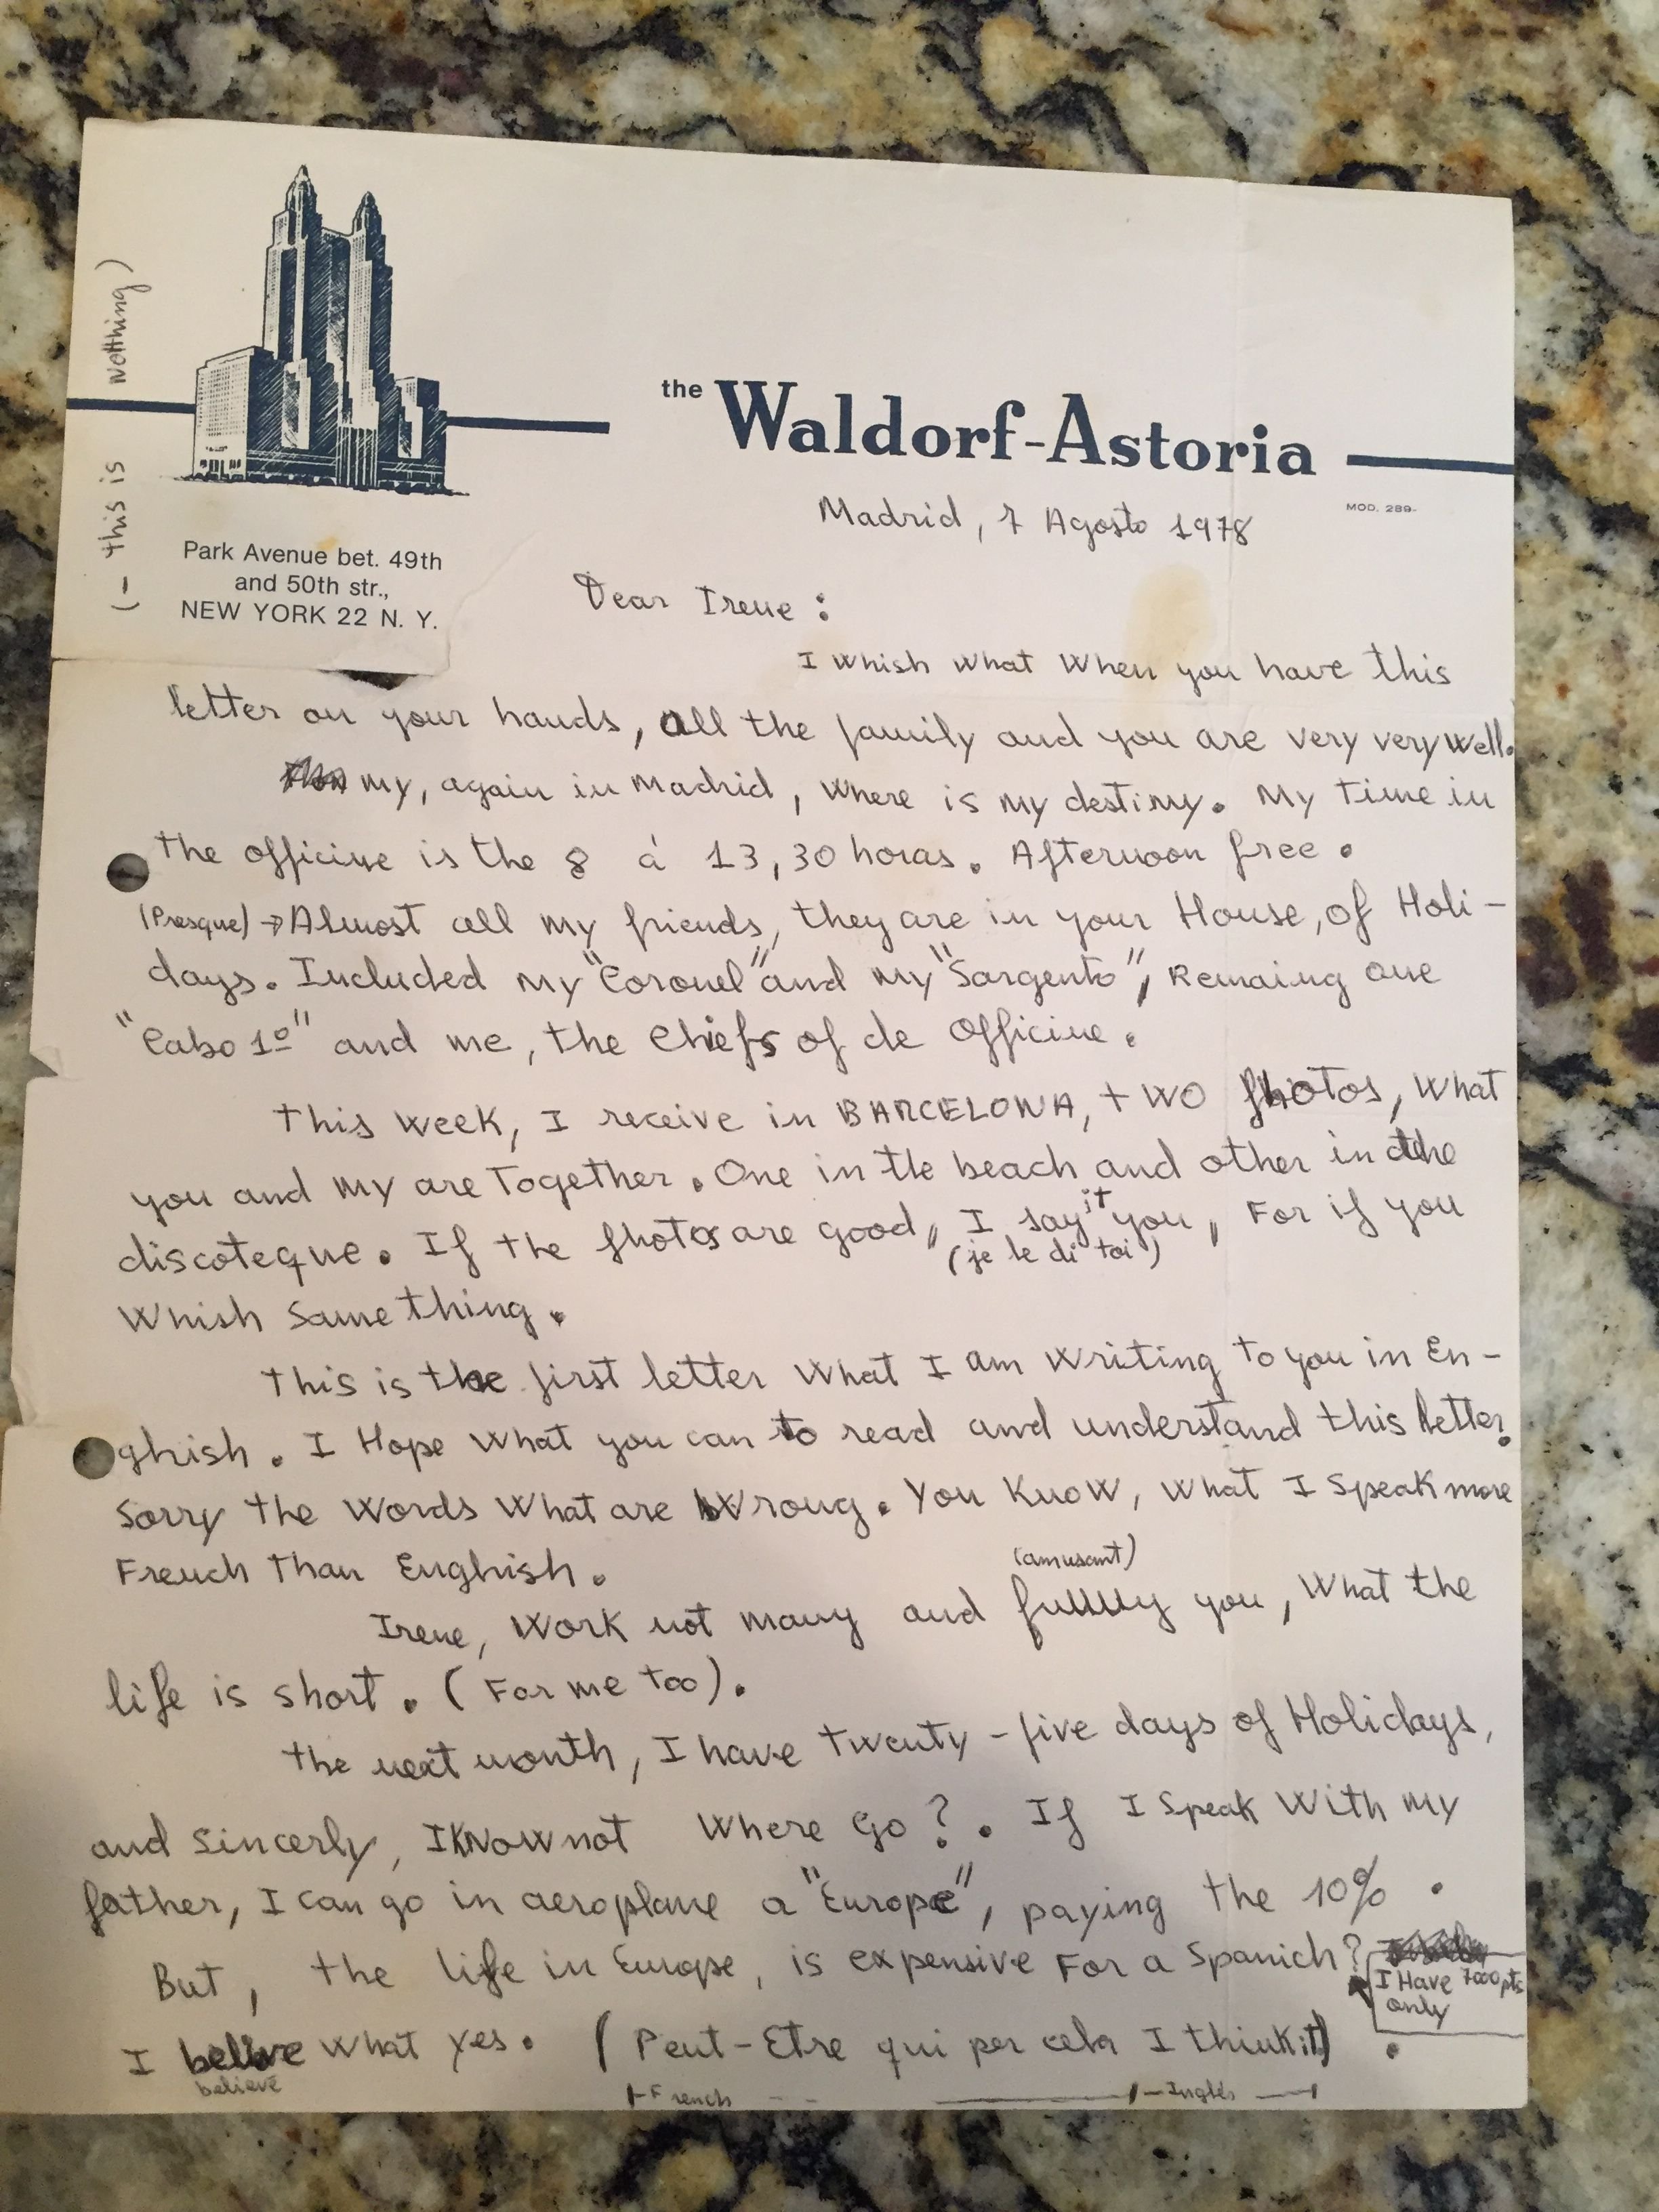 (- this is notthing)
the Waldorf-Astoria
MOD. 289-
Park Avenue bet. 49th
and 50th str.,
NEW YORK 22 N. Y.
Madrid, 7 Agosto 1978
Dear Irene :
I whish what when you have this
letter on your hands, all the family and you are very very well.
my, again in Madrid, where is my destiny. My time in
the officine is the 8 á 13,30 horas. Afternoon free.
(Presque) → Almost all my friends, they are in your House, of Holi-
days. Included my "Coronel" and my "Sargento", Remaing one
"Cabo 1º" and me, the chiefs of de officine.
This week, I receive in BARCELONA, two photos, what
you and my are Together. One in the beach and other in the
discoteque. If the photos are good, I say it you, For if you
(je le di toi)
whish same thing.
This is the first letter what I am writing to you in En-
ghish. I Hope what you can to read and understand this letter.
Sorry the words what are wrong. You know, what I speak more
French Than Enghish.
(amusant)
Irene, work not many and funny you, what the
life is short. (For me too).
The next month, I have twenty-five days of Holidays,
and sincerly, I know not where go?. If I speak with my
father, I can go in aeroplane a "Europe", paying the 10% .
But, the life in Europe, is expensive For a Spanich?
I Have 7000 pts
only
I believe what yes. (Peut-Etre qui per cela I think it) .
believe
French - Inglés